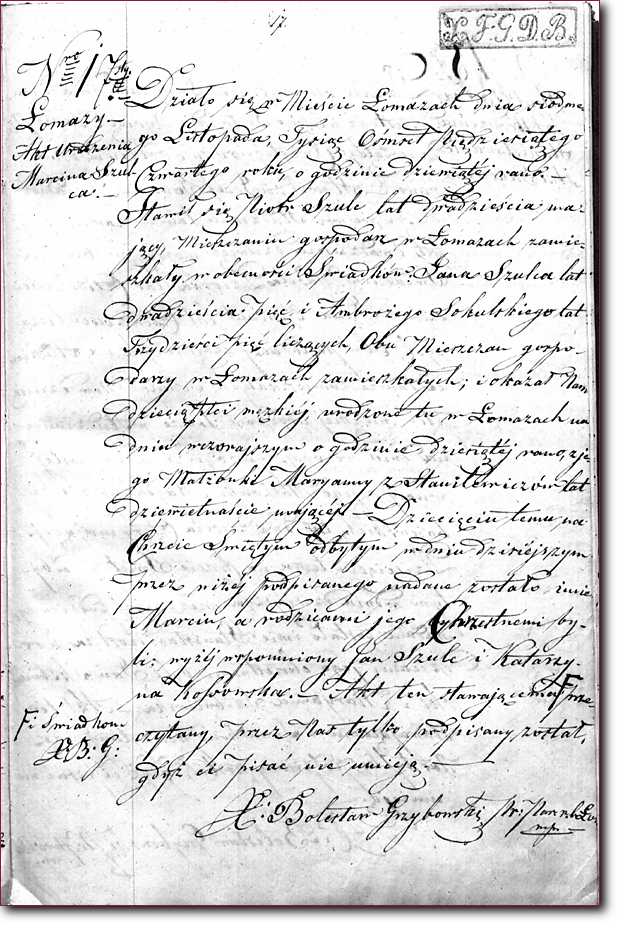 17.
X. F. G. D. B.
Nro 17.
Łomazy.—
Akt Urodzenia
Marcina Szul-
ca.—
Działo się w Mieście Łomazach dnia siódme-
go Listopada, Tysiąc Ośmset Piędziesiątego
Czwartego roku, o godzinie dziewiątéj rano.—
Stawił się Piotr Szulc lat dwadzieścia ma-
jący, Mieszczanin gospodarz w Łomazach zamie-
szkały, w obecności Świadków: Jana Szulca lat
dwadzieścia pięć, i Ambrożego Sokulskiego lat
Trzydzieści pięć liczących, Obu Mieszczan gospo-
darzy w Łomazach zamieszkałych; i okazał Nam
dziecię płci męzkiéj, urodzone tu w Łomazach na
dniu wczorajszym o godzinie dziesiątéj rano, z je-
go Małżonki Maryanny z Staniłewiczów lat
dziewietnaście mającéj.— Dziecięciu temu na
Chrzcie Świętym odbytym w dniu dzisiéjszym
przez niżéj podpisanego nadane zostało imie
Marcin, a rodzicami jego Chrzestnemi by-
li: wyżéj wspomniony Jan Szulc i Katarzy-
na Kossowska.— Akt ten stawającemu F prze
czytany, przez Nas tylko podpisany został,
gdyż ci pisać nie umieją.—
F i Świadkom
X B: G:
X. Bolesław Grzybowski
mp.